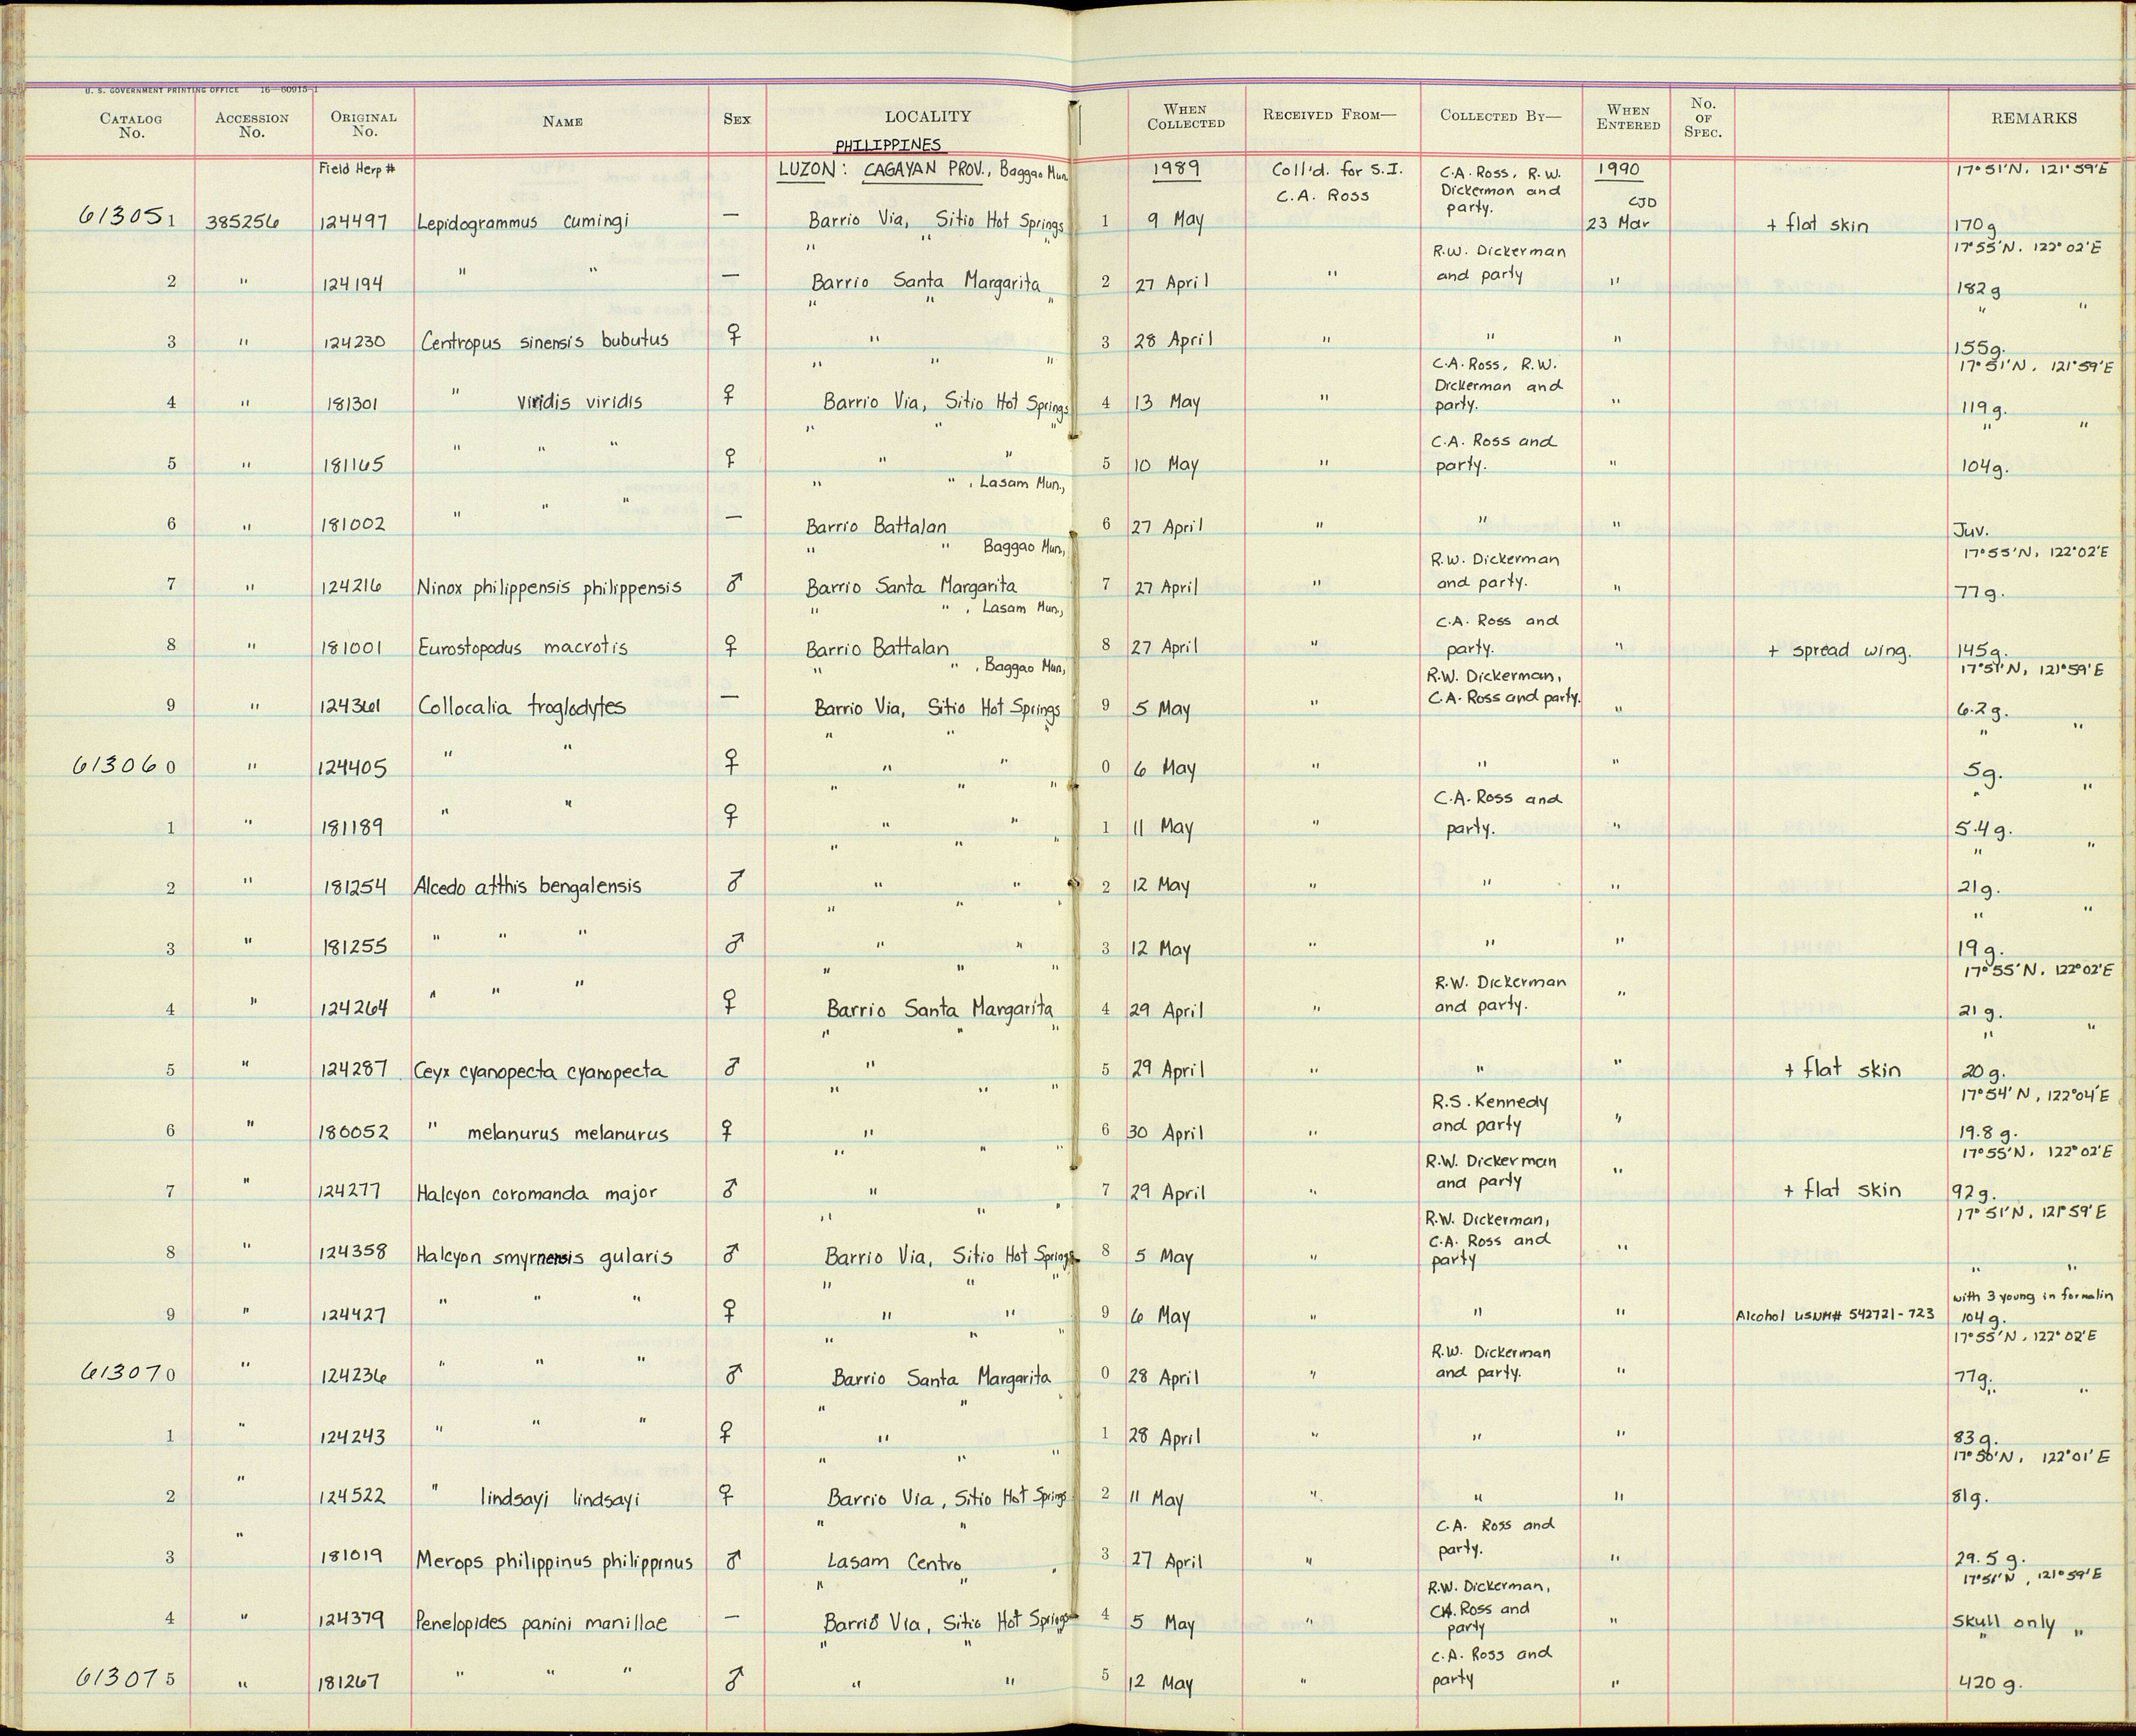 U. S. GOVERNMENT PRINTING OFFICE 16—60915-1
CATALOG No. ACCESSION No. ORIGINAL No. NAME SEX LOCALITY WHEN COLLECTED RECEIVED FROM— COLLECTED BY— WHEN ENTERED No. OF SPEC. REMARKS
PHILIPPINES
Field Herp # LUZON: CAGAYAN PROV., Baggao Mun. 1989 Coll'd. for S.I. C.A. Ross, R.W. 1990 17°51'N, 121°59'E
C.A. Ross Dickerman and CJD
party.
61305 1 385256 124497 Lepidogrammus cumingi — Barrio Via, Sitio Hot Springs 1 9 May 23 Mar + flat skin 170g
" " " R.W. Dickerman 17°55'N. 122°02'E
2 " 124194 " " — Barrio Santa Margarita 2 27 April " and party " 182g
" " " " "
3 " 124230 Centropus sinensis bubutus ♀ " 3 28 April " " " 155g.
" " " C.A. Ross, R.W. 17°51'N, 121°59'E
Dickerman and
4 " 181301 " viridis viridis ♀ Barrio Via, Sitio Hot Springs 4 13 May " party. " 119g.
" " " C.A. Ross and " "
5 " 181165 " " " ♀ " " 5 10 May " party. " 104g.
" " , Lasam Mun.,
6 " 181002 " " " — Barrio Battalan 6 27 April " " " Juv.
" " Baggao Mun, R.W. Dickerman 17°55'N, 122°02'E
7 " 124216 Ninox philippensis philippensis ♂ Barrio Santa Margarita 7 27 April " and party. " 77g.
" " , Lasam Mun., C.A. Ross and
8 " 181001 Eurostopodus macrotis ♀ Barrio Battalan 8 27 April " party. " + spread wing. 145g.
" " , Baggao Mun, R.W. Dickerman, 17°51'N, 121°59'E
9 " 124361 Collocalia troglodytes — Barrio Via, Sitio Hot Springs 9 5 May " C.A. Ross and party. " 6.2g.
" " " " "
61306 0 " 124405 " " ♀ " " 0 6 May " " " 5g.
" " " C.A. Ross and " "
1 " 181189 " " ♀ " " 1 11 May " party. " 5.4g.
" " " " "
2 " 181254 Alcedo atthis bengalensis ♂ " " 2 12 May " " " 21g.
" " " " "
3 " 181255 " " " ♂ " " 3 12 May " " " 19g.
" " " R.W. Dickerman 17°55'N. 122°02'E
4 " 124264 " " " ♀ Barrio Santa Margarita 4 29 April " and party. " 21g.
" " " " "
5 " 124287 Ceyx cyanopecta cyanopecta ♂ " 5 29 April " " " + flat skin 20g.
" " " R.S. Kennedy 17°54'N, 122°04'E
6 " 180052 " melanurus melanurus ♀ " 6 30 April " and party " 19.8g.
" " " R.W. Dickerman 17°55'N. 122°02'E
7 " 124277 Halcyon coromanda major ♂ " 7 29 April " and party " + flat skin 92g.
" " " R.W. Dickerman, 17°51'N, 121°59'E
C.A. Ross and
8 " 124358 Halcyon smyrnensis gularis ♂ Barrio Via, Sitio Hot Springs 8 5 May " party "
" " " " "
with 3 young in formalin
9 " 124427 " " " ♀ " " 9 6 May " " " Alcohol USNM# 542721-723 104g.
" " " R.W. Dickerman 17°55'N, 122°02'E
61307 0 " 124236 " " " ♂ Barrio Santa Margarita 0 28 April " and party. " 77g.
" " " " "
1 " 124243 " " " ♀ " 1 28 April " " " 83g.
" " " 17°50'N, 122°01'E
2 " 124522 " lindsayi lindsayi ♀ Barrio Via, Sitio Hot Springs 2 11 May " " " 81g.
" " C.A. Ross and
3 " 181019 Merops philippinus philippinus ♂ Lasam Centro 3 27 April " party. " 29.5g.
" " " R.W. Dickerman, 17°51'N, 121°59'E
C.A. Ross and
4 " 124379 Penelopides panini manillae — Barrio Via, Sitio Hot Springs 4 5 May " party " Skull only
" " " C.A. Ross and " "
61307 5 " 181267 " " " ♂ " " 5 12 May " party " 420g.